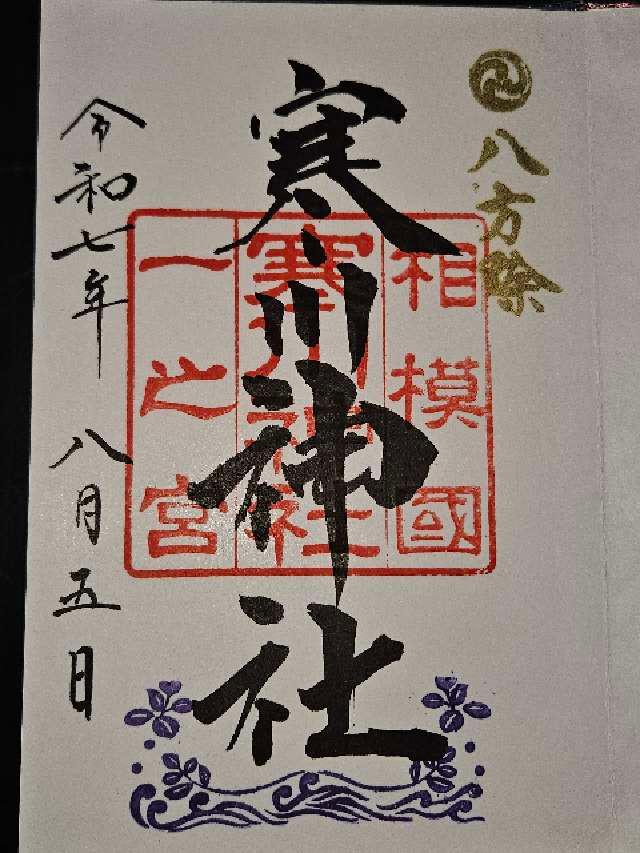 八方除
寒川神社
相模國
寒川神社
一之宮
令和七年 八月五日